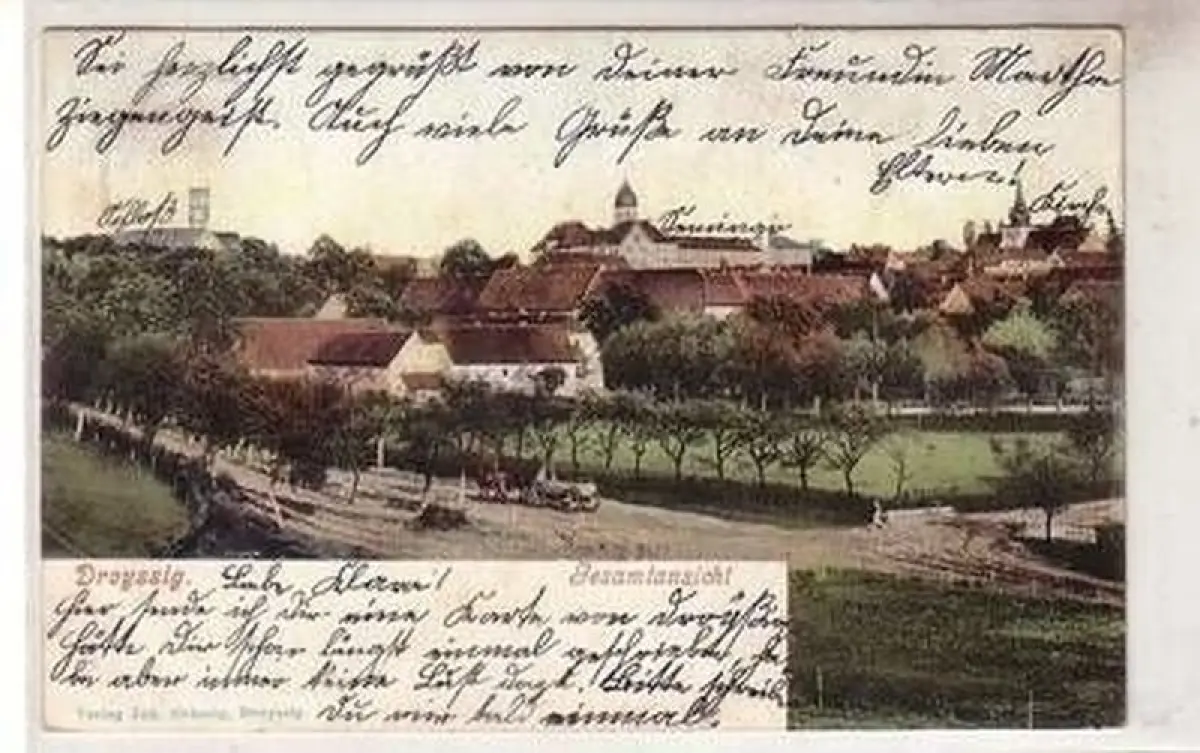 Sei herzlichst gegrüßt von deiner Freundin Martha
Ziegengeist. Auch viele Grüße an deine lieben
Eltern!
Schloß
Kirche
Droyssig. Liebe Klara! Gesamtansicht
Hier sende ich dir eine Karte von Droyßig
Hätte Dir schon längst einmal geschrieben, ha-
be aber immer keine Lust dazu. Bitte schreib
Verlag Droyssig. Du mir bald einmal.